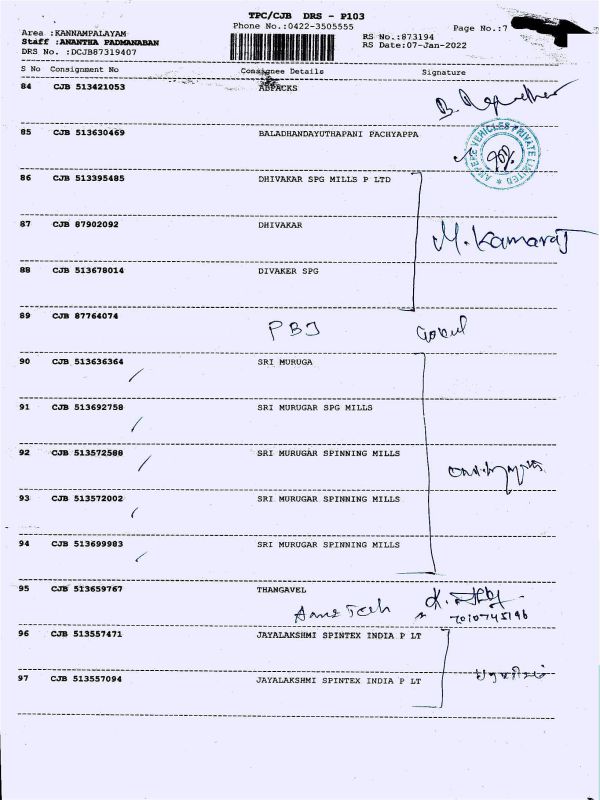 TPC/CJB DRS - P103
Phone No.:0422-3505555
Page No.:7
Area :KANNAMPALAYAM
RS No.:873194
Staff :ANANTHA PADMANABAN
RS Date:07-Jan-2022
DRS No. :DCJB87319407
S No Consignment No Consignee Details Signature
84 CJB 513421053 ABPACKS
85 CJB 513630469 BALADHANDAYUTHAPANI PACHYAPPA
AMPERE VEHICLES PRIVATE LIMITED
86 CJB 513395485 DHIVAKAR SPG MILLS P LTD
87 CJB 87902092 DHIVAKAR M.Kamaraj
88 CJB 513678014 DIVAKER SPG
89 CJB 87764074 PBJ Gokul
90 CJB 513636364 SRI MURUGA
91 CJB 513692758 SRI MURUGAR SPG MILLS
92 CJB 513572588 SRI MURUGAR SPINNING MILLS
93 CJB 513572002 SRI MURUGAR SPINNING MILLS
94 CJB 513699983 SRI MURUGAR SPINNING MILLS
95 CJB 513659767 THANGAVEL
Tech
96 CJB 513557471 JAYALAKSHMI SPINTEX INDIA P LT
97 CJB 513557094 JAYALAKSHMI SPINTEX INDIA P LT